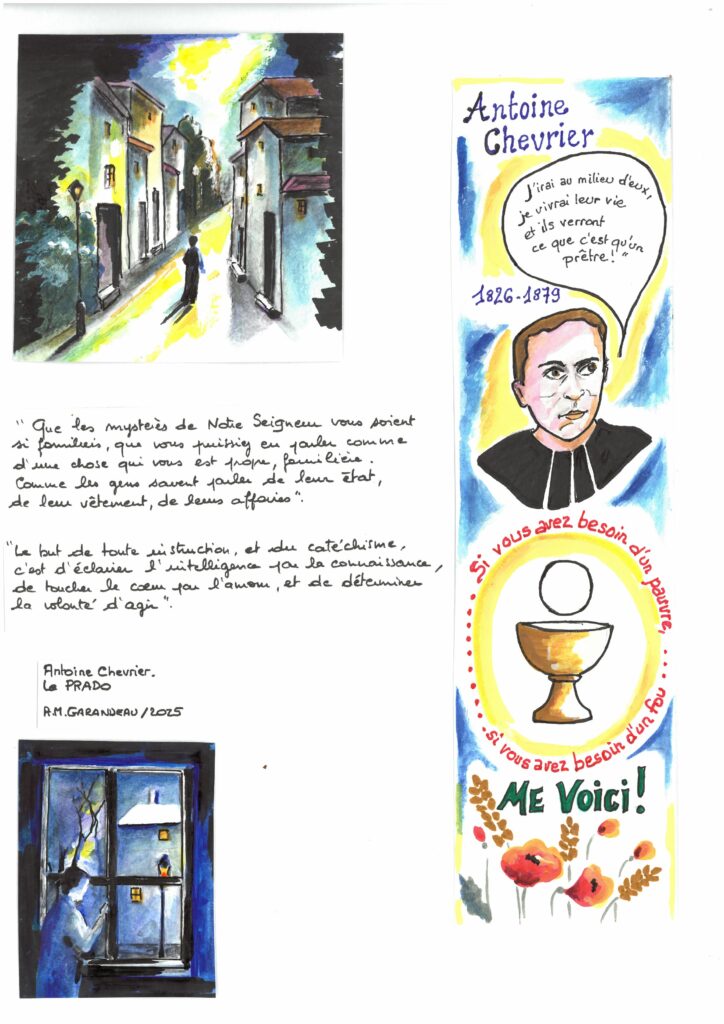 " Que les mystères de Notre Seigneur vous soient
si familiers, que vous puissiez en parler comme
d'une chose qui vous est propre, familière.
Comme les gens savent parler de leur état,
de leur vêtement, de leurs affaires".
"Le but de toute instruction, et du catéchisme,
c'est d'éclairer l'intelligence par la connaissance,
de toucher le cœur par l'amour, et de déterminer
la volonté d'agir".
Antoine Chevrier.
Le PRADO
A.M.GARANDEAU/2025
Antoine
Chevrier
J'irai au milieu d'eux,
je vivrai leur vie
et ils verront
ce que c'est qu'un
prêtre!"
1826-1879
Si vous avez besoin d'un pauvre,
....si vous avez besoin d'un fou
ME VOICI!